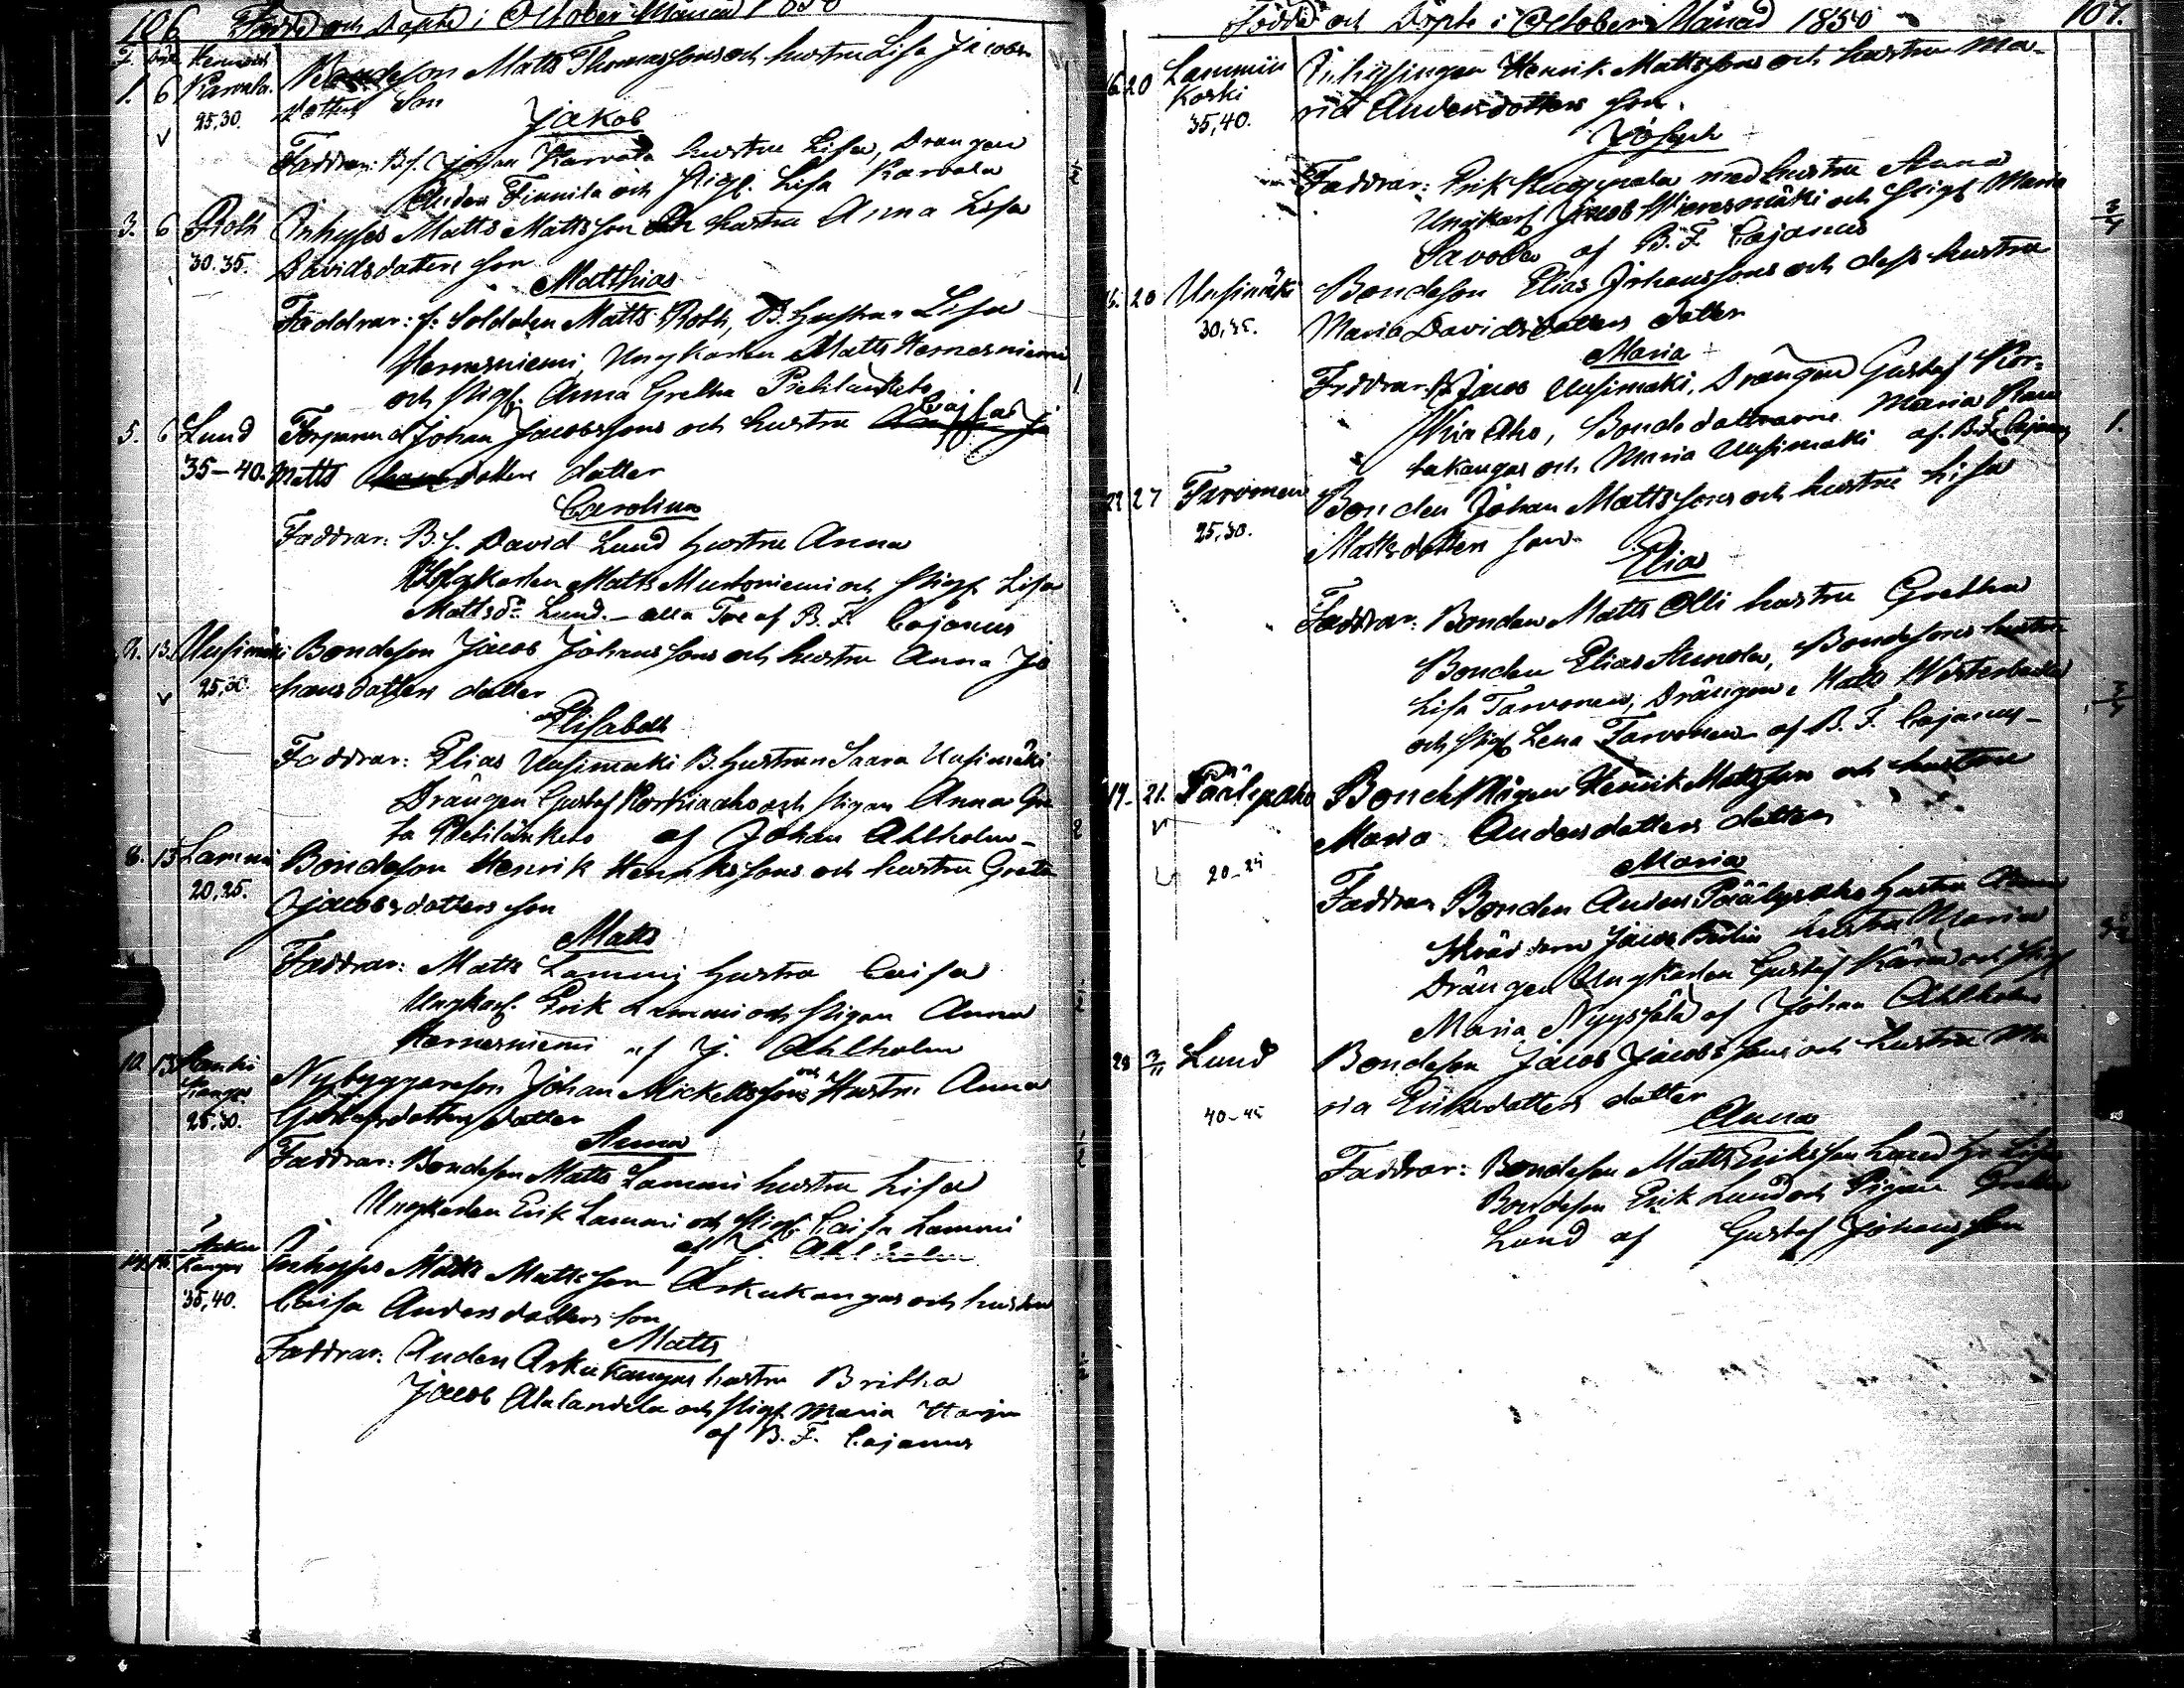 106 Födde och Döpte i October Månad 1850
F. Döpte Hemvist
1. 6 Karvala Bondeson Matts Thomassons och hustru Lisa Jacobs
25,30. dotters Son
Jakob
Faddrar: B.s. Johan Karvala hustru Lisa, Drängen
Anders Finnila och Pig. Lisa Karvala
3. 6 Roth Inhyses Matts Mattsson och hustru Anna Lisa
30.35. Davidsdotters son
Matthias
Faddrar: f. Soldaten Matts Roth, B. Hustrun Lisa
Hernesniemi, Ungkarlen Matts Hernesniemi
och Pig. Anna Gretha Pietilankeho 1
5. 6 Lund Torparen Johan Jacobssons och hustru Cajsa
35-40. Matts dotters dotter
Carolina
Faddrar: B.s. David Lund hustru Anna
Ungkarlen Matts Mustoniemi och Pig. Lisa
Mattsdr Lund. - alla Tre af B. F. Cajanus
9. 13. Uusimäki Bondeson Jacob Johanssons och hustru Anna Jo
25,30. hansdotters dotter
Elisabeth
Faddrar: Elias Uusimäki B. Hustrun Saara Uusimäki
Drängen Gustaf Korkiaaho och Pigan Anna Gre
ta Pietilänkeho af Johan Ahlholm - 2
8. 13 Lammi Bondeson Henrik Henrikssons och hustru Greta
20,25. Jacobsdotters son
Matts
Faddrar: Matts Lammi hustru Caisa
Ungkarl. Erik Lammi och Pigan Anna ½
Hernesniemi af J. Ahlholm
10. 13 Hanhi
kangas Nybyggareson Johan Mickelssons och Hustru Anna
25,30. Gustafsdotters dotter
Anna
Faddrar: Bondeson Matts Lammi hustru Lisa ½
Ungkarlen Erik Lammi och Pig. Caisa Lammi
af J. Ahlholm
Asku
kangas Inhyses Matts Mattsson Askukangas och hustru
35,40. Caisa Andersdotters son
Matts
Faddrar: Anders Askukangas hustru Britha ½
Jacob Alalandela och Pig. Maria Harju
af B. F. Cajanus
Födde och Döpte i October Månad 1850 107.
16. 20 Lammin
Koski Inhysingen Henrik Mattssons och hustru Ma-
35,40. ria Andersdotters son.
Joseph
Faddrar: Erik Kuoppala med hustru Anna
Ungkarl Jacob Wieresmäki och Pig. Maria
Savola af B. F. Cajanus
15. 20 Uusimäki Bondeson Elias Johanssons och dess hustru
30,35. Maria Davidsdotters dotter
Maria
Faddrar: B Jacob Uusimäki, Drängen Gustaf Kor-
kia Aho, Bondedottrarne Maria Ran
takangas och Maria Uusimäki af B. F. Cajanus 1.
22 27 Tarvonen Bonden Johan Mattssons och hustru Lisa
25,30. Mattsdotters son
Elias
Faddrar: Bonden Matts Olli hustru Gretha
Bonden Elias Annola, Bondesons hustru
Lisa Tarvonen, Drängen Matts Westerbacka
och Pig. Lena Tarvonen af B. F. Cajanus -
19. 21. Päälysaho Bondemågen Henrik Mattsson och hustru
Maria Andersdotters dotter
20-25 Maria
Faddrar Bonden Anders Päälysaho hustru Anna
Skräddaren Jacob hustru Maria
Drängen Ungkarlen Gustaf Kärnä och Pig
Maria Nyyssälä af Johan Ahlholm
28 3/11 Lund Bondeson Jacob Jacobssons och hustru Ma
40-45 ria Eriksdotters dotter
Anna
Faddrar: Bondeson Matts Eriksson Lund Hu Lisa
Bondeson Erik Lund och Pigan Gretha
Lund af Gustaf Johansson